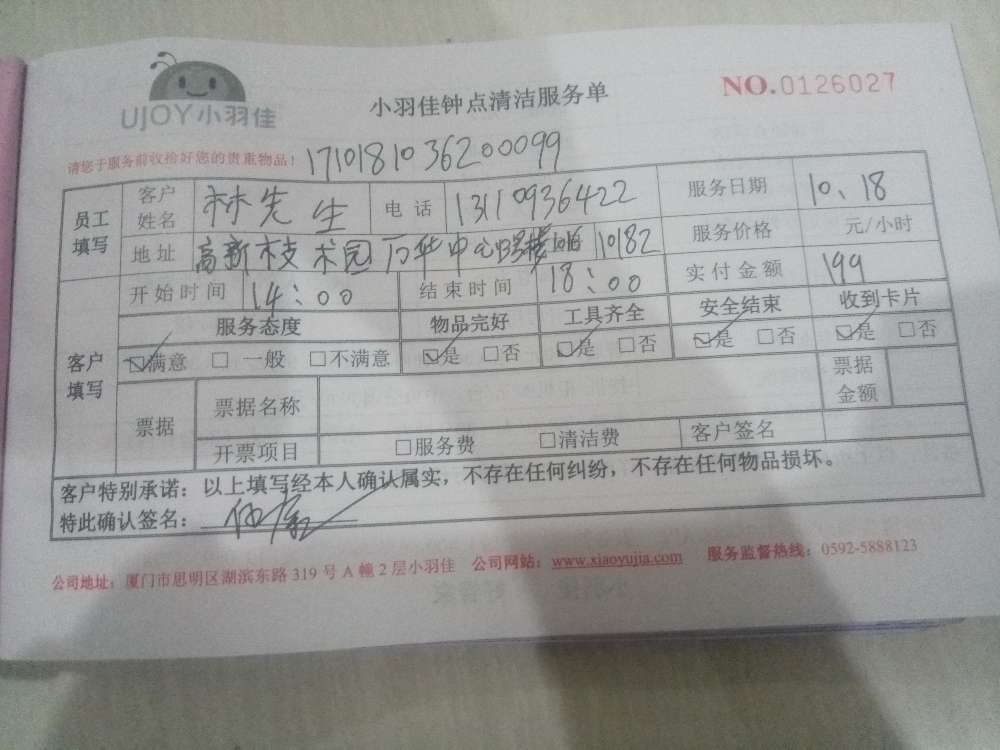 UJOY小羽佳
小羽佳钟点清洁服务单
NO.0126027
请您于服务前收拾好您的贵重物品！ 1710181036200099
员工填写 客户姓名 林先生 电话 13110936422 服务日期 10、18
地址 高新技术园万华中心 10182 服务价格 元/小时
客户填写 开始时间 14：00 结束时间 18：00 实付金额 199
服务态度 物品完好 工具齐全 安全结束 收到卡片
☑满意 □一般 □不满意 ☑是 □否 ☑是 □否 ☑是 □否 ☑是 □否
票据 票据名称 票据金额
开票项目 □服务费 □清洁费 客户签名
客户特别承诺：以上填写经本人确认属实，不存在任何纠纷，不存在任何物品损坏。
特此确认签名：
公司地址：厦门市思明区湖滨东路319号A幢2层小羽佳 公司网站：www.xiaoyujia.com 服务监督热线：0592-5888123